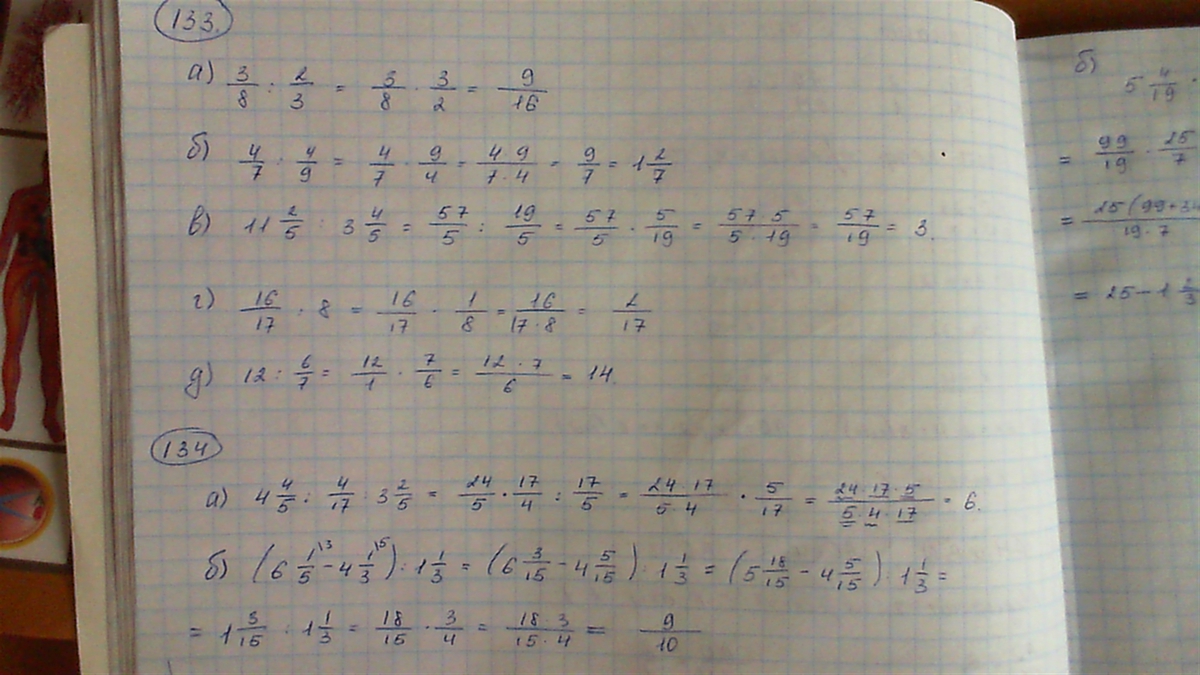 133.
а) 3/8 : 2/3 = 3/8 · 3/2 = 9/16
б) 4/7 : 4/9 = 4/7 · 9/4 = 4·9/7·4 = 9/7 = 1 2/7
в) 11 2/5 : 3 4/5 = 57/5 : 19/5 = 57/5 · 5/19 = 57·5/5·19 = 57/19 = 3.
г) 16/17 : 8 = 16/17 · 1/8 = 16/17·8 = 2/17
д) 12 : 6/7 = 12/1 · 7/6 = 12·7/6 = 14.
134
а) 4 4/5 : 4/17 : 3 2/5 = 24/5 · 17/4 : 17/5 = 24·17/5·4 · 5/17 = 24·17·5/5·4·17 = 6.
б) (6 1/5 \3 - 4 1/3 \5) : 1 1/3 = (6 3/15 - 4 5/15) : 1 1/3 = (5 18/15 - 4 5/15) : 1 1/3 =
= 1 3/15 : 1 1/3 = 18/15 · 3/4 = 18·3/15·4 = 9/10
б)
5 4/19
= 99/19 · 25/7
= 25(99+3/19·7
= 25-1 2/3